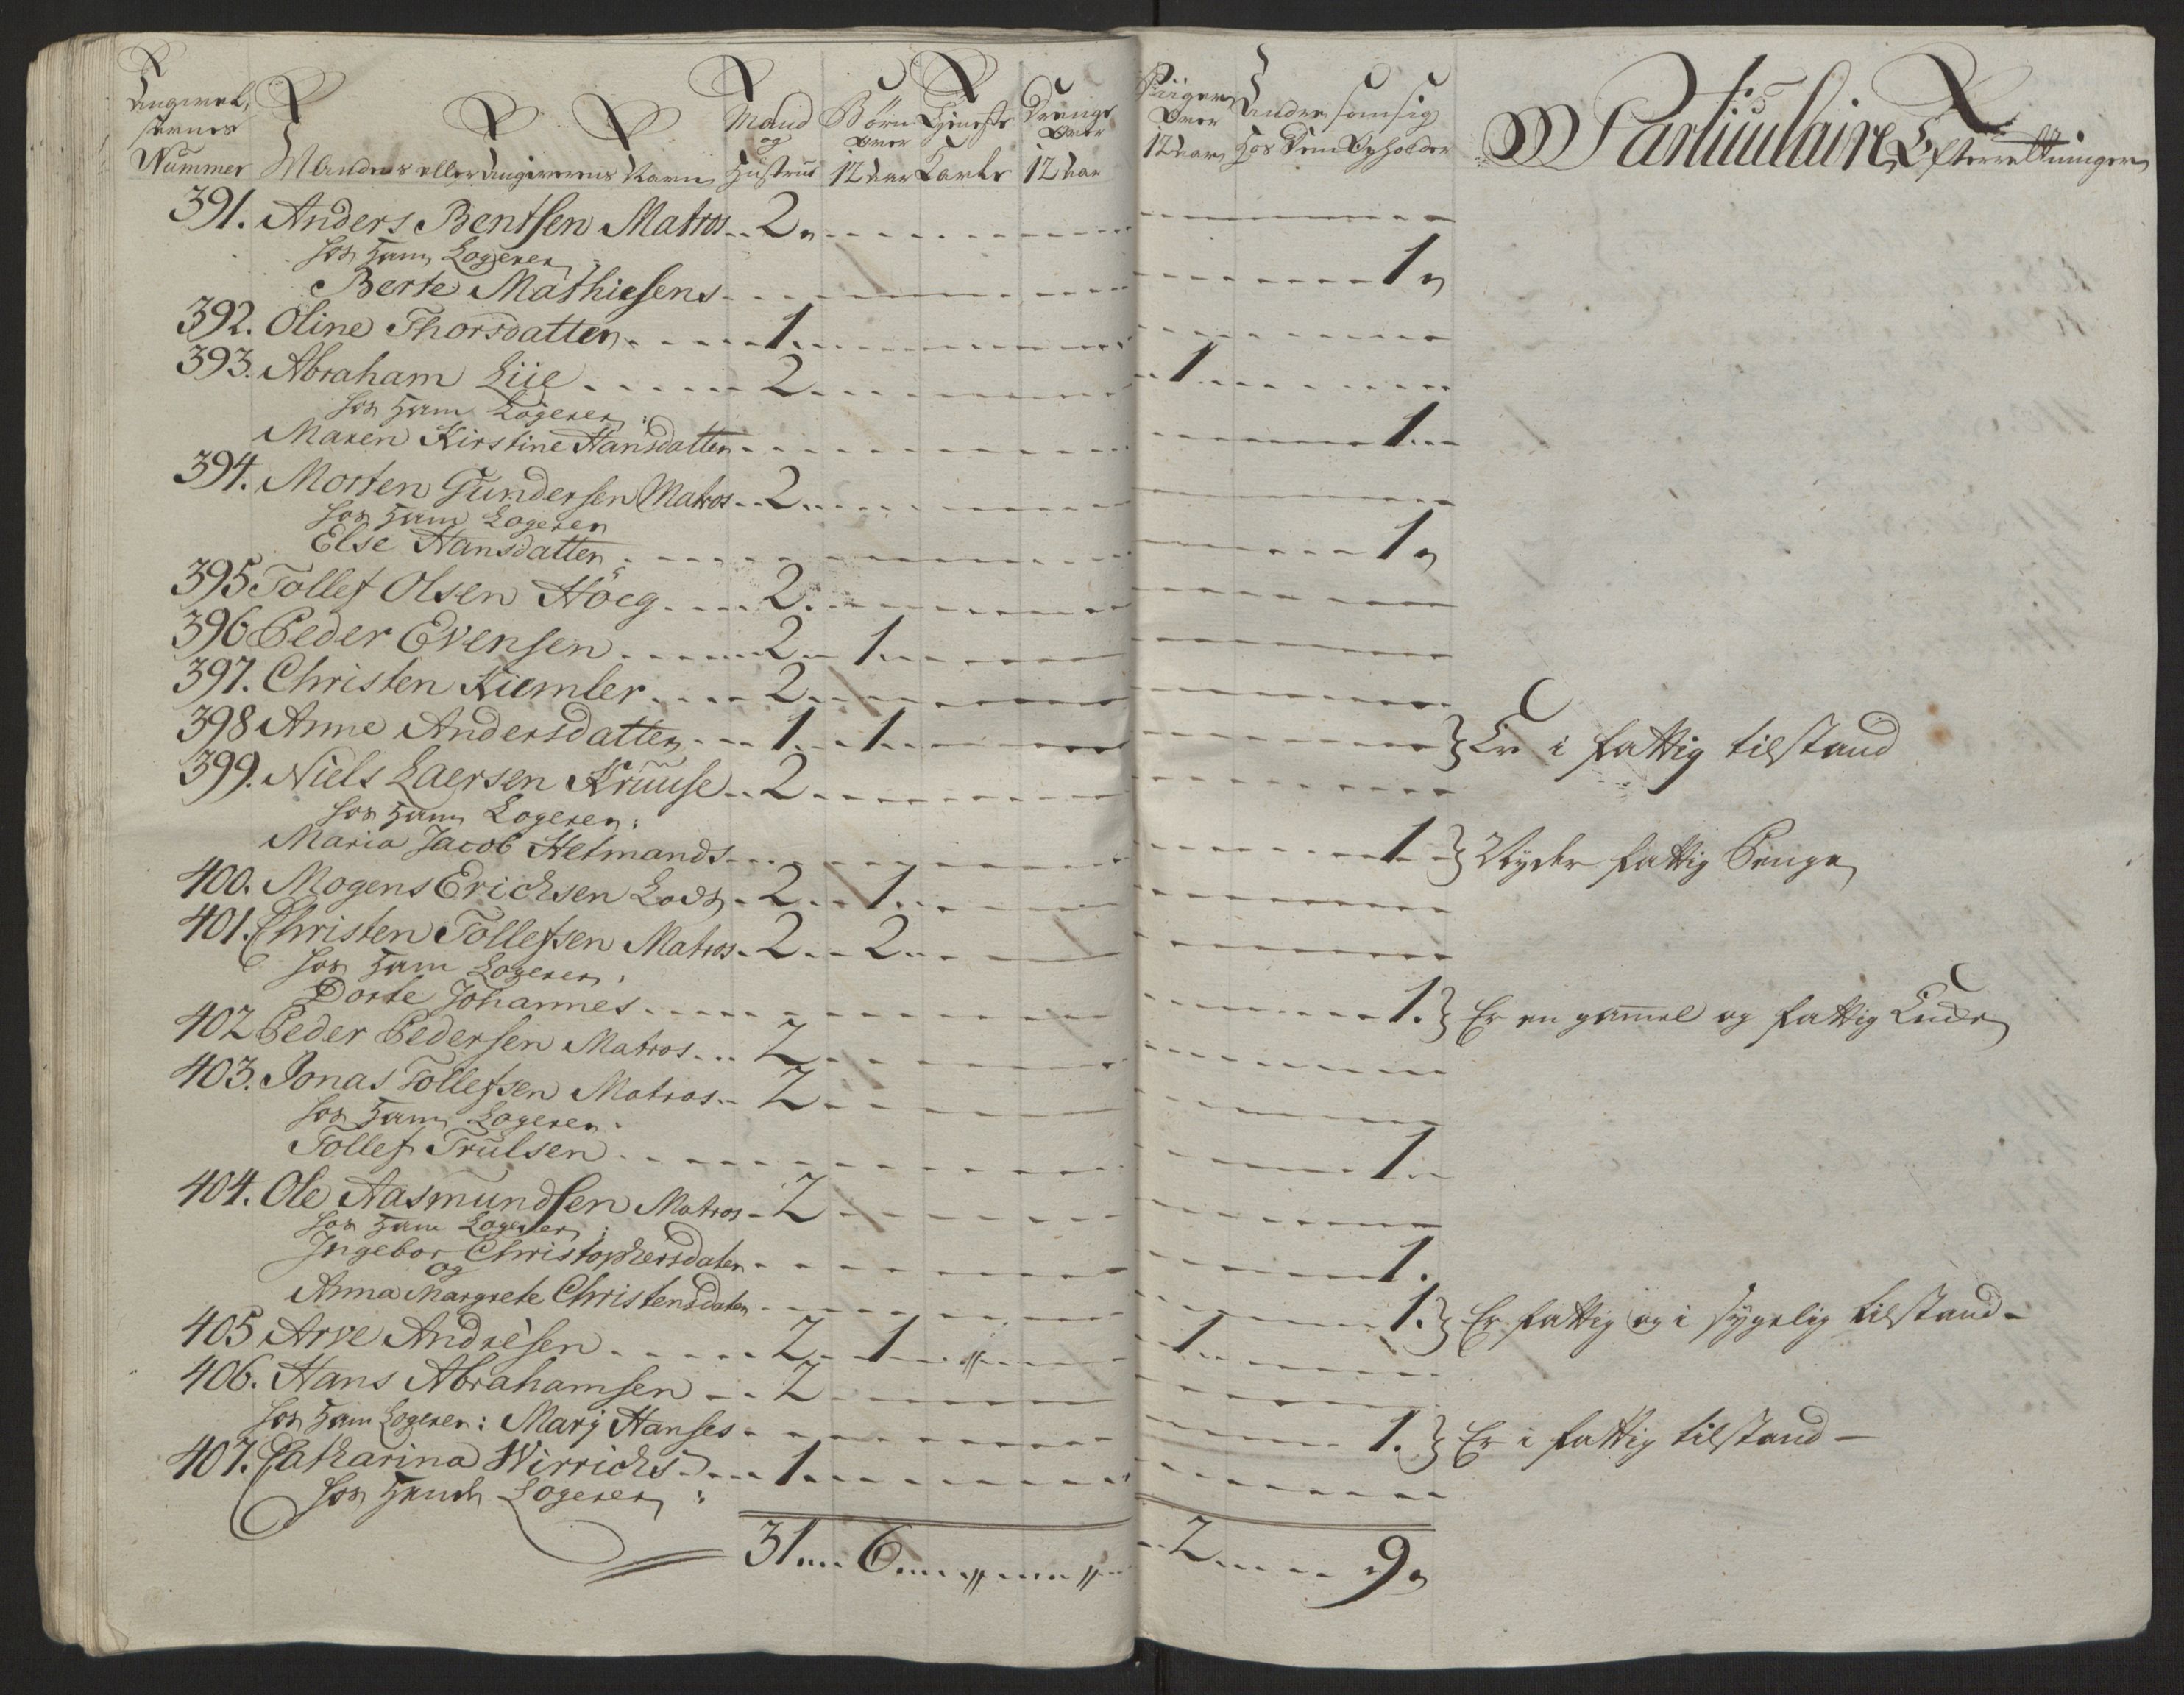 Angivel,
sernes
Nummer
Mandens eller Angiverens Navn
Mand
og
Hustrue
Børn
over
12 Aar
Tieneste
Karle
Drenge
over
12 Aar
Piiger
over
12 Aar
Andre som sig
hos dem Opholder
Particulaire Efterretninger
391. Anders Bentsen Matros 2
hos ham Logerer
Berte Mathiesens 1
392. Oline Thorsdatter 1
393. Abraham Liie 2 1
hos ham Logerer:
Maren Kirstine Hansdatter 1
394. Morten Gundersen Matros 2
hos ham Logerer
Else Hansdatter 1
395 Tollef Olsen Höeg 2
396 Peder Evensen 2 1
397. Christen Kiemler 2
398 Anne Andersdatter 1 1 } Er i fattig tilstand
399. Niels Laersen Kruuse 2
hos ham Logerer:
Maria Jacob Hetmands 1 } Nyder fattig Penge
400. Mogens Erichsen Lods 2 1
401. Christen Tollefsen Matros 2 2
hos ham Logerer:
Dorte Johannes 1. } Er en gamel og fattig Enke
402 Peder Pedersen Matros 2
403. Jonas Tollefsen Matros 2
hos ham Logerer.
Tollef Trulsen 1
404. Ole Aasmundsen Matros 2
hos ham Logerer:
Ingebor Christophersdater 1.
og
Anna Margrete Christensdater 1. } Er fattig og i sygelig tilstand
405 Arve Andrèsen 2 1 " 1
406. Hans Abrahamsen 2
hos ham Logerer: Marj Hanses 1. } Er i fattig tilstand
407. Catharina Wirrichs 1
hos hende Logerer:
31 6 " " 2 9